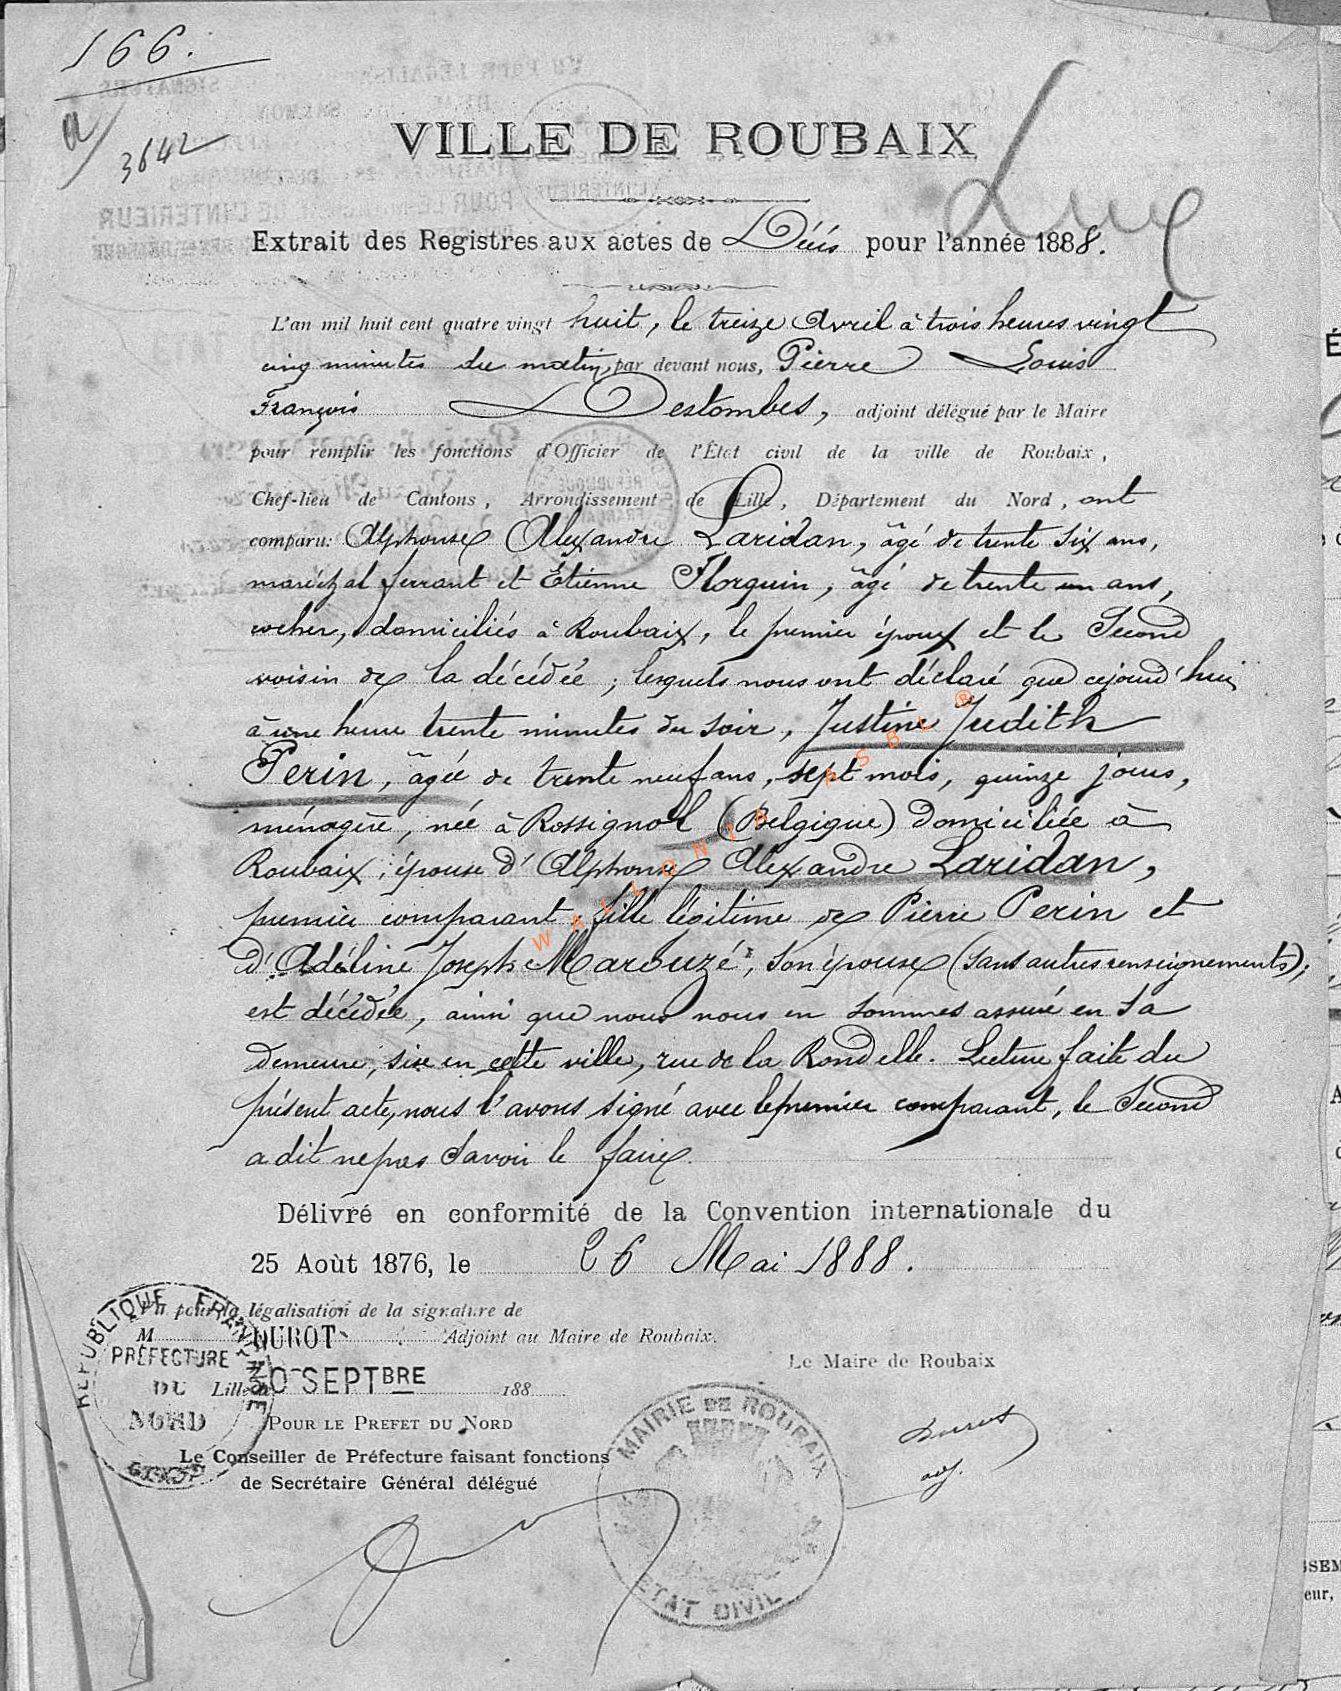 166.
a/ 3642
VILLE DE ROUBAIX
Luc
Extrait des Registres aux actes de Décès pour l'année 1888.
L'an mil huit cent quatre vingt huit, le treize Avril à trois heures vingt
cinq minutes du matin, par devant nous, Pierre Louis
François Destombes, adjoint délégué par le Maire
pour remplir les fonctions d'Officier de l'État civil de la ville de Roubaix,
Chef-lieu de Cantons, Arrondissement de Lille, Département du Nord, ont
comparu: Alphonse Alexandre Laridan, âgé de trente six ans,
maréchal ferrant et Étienne Florquin, âgé de trente un ans,
cocher, domiciliés à Roubaix, le premier époux et le Second
voisin de la décédée; lesquels nous ont déclaré que cejourd'hui
à une heure trente minutes du soir, Justine Judith
Perin, âgée de trente neuf ans, sept mois, quinze jours,
ménagère, née à Rossignol (Belgique) domiciliée à
Roubaix, épouse d'Alphonse Alexandre Laridan,
premier comparant, fille légitime de Pierre Perin et
d'Adéline Joseph Marouzé, son épouse (sans autres renseignements);
est décédée, ainsi que nous nous en sommes assuré en sa
demeure, sise en cette ville, rue de la Rondelle. Lecture faite du
présent acte, nous l'avons signé avec le premier comparant, le Second
a dit ne pas savoir le faire.
Délivré en conformité de la Convention internationale du
25 Août 1876, le 26 Mai 1888.
Vu pour la légalisation de la signature de
M DUROT Adjoint au Maire de Roubaix.
Le Maire de Roubaix
Lille SEPTBRE 188
POUR LE PREFET DU NORD
Le Conseiller de Préfecture faisant fonctions
de Secrétaire Général délégué
Durot
adj.
REPUBLIQUE FRANÇAISE
PRÉFECTURE
DU
NORD
MAIRIE DE ROUBAIX
ETAT CIVIL
WALLONIA ASBL ®